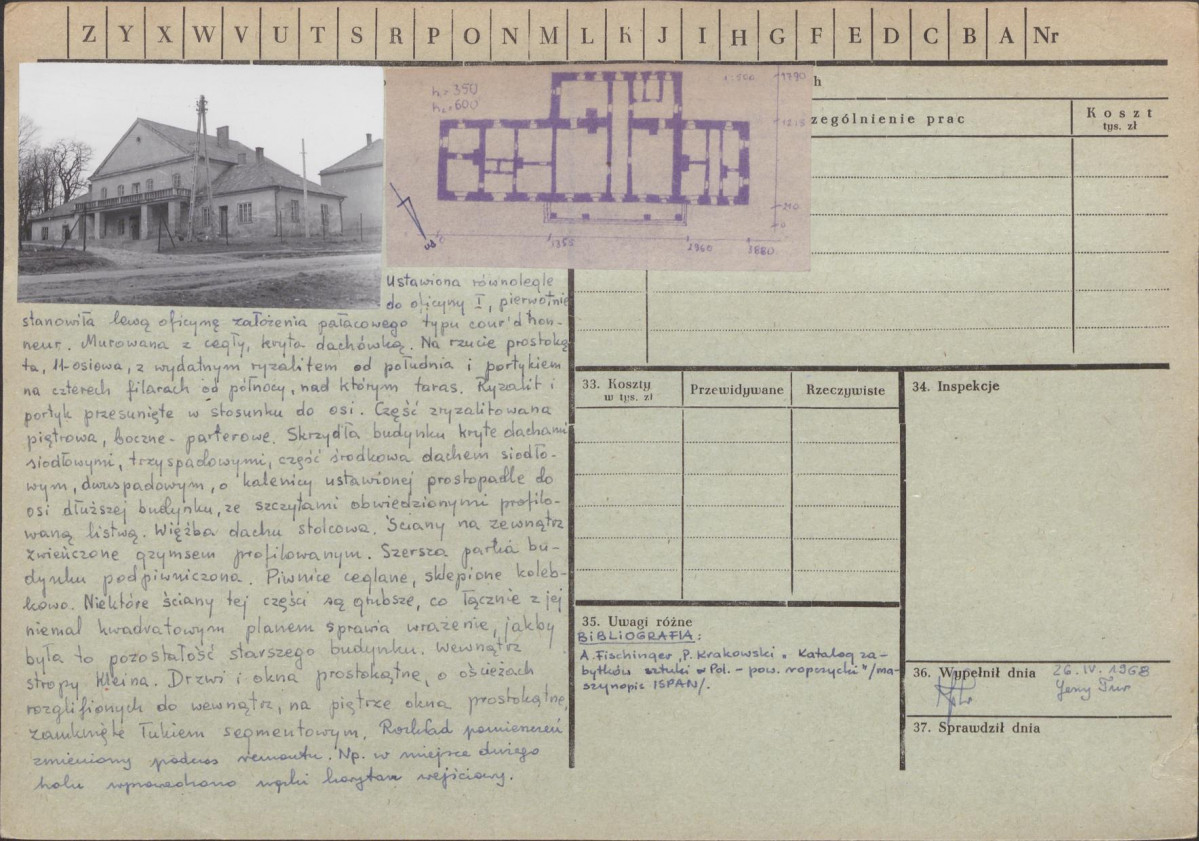 Z Y X W V U T S R P O N M L K J I H G F E D C B A Nr
h
zególnienie prac
Koszt
tys. zł
h1=350
h2=600
1:500
1790
1215
210
0
0
1355
1960
1880
Ustawiona równolegle
do oficyny I, pierwotnie
stanowiła lewą oficynę założenia pałacowego typu cour'd hon-
neur. Murowana z cegły, kryta dachówką. Na rzucie prostoką
ta, 11-osiowa, z wydatnym ryzalitem od południa i portykiem
na czterech filarach od północy, nad którym taras. Ryzalit i
portyk przesunięte w stosunku do osi. Część zryzalitowana
piętrowa, boczne - parterowe. Skrzydła budynku kryte dachami
siodłowymi, trzyspadowymi, część środkowa dachem siodło-
wym, dwuspadowym, o kalenicy ustawionej prostopadle do
osi dłuższej budynku, ze szczytami obwiedzionymi profilo-
waną listwą. Więźba dachu stolcowa. Ściany na zewnątrz
zwieńczone gzymsem profilowanym. Szersza partia bu-
dynku podpiwniczona. Piwnice ceglane, sklepione koleb-
kowo. Niektóre ściany tej części są grubsze, co łącznie z jej
niemal kwadratowym planem sprawia wrażenie, jakby
była to pozostałość starszego budynku. Wewnątrz
stropy Kleina. Drzwi i okna prostokątne, o ościeżach
rozglifionych do wewnątrz, na piętrze okna prostokątne,
zamknięte łukiem segmentowym. Rozkład pomieszczeń
zmieniony podczas remontu. Np. w miejsce dużego
holu wprowadzono wąski korytarz wejściowy.
33. Koszty
w tys. zł
Przewidywane
Rzeczywiste
34. Inspekcje
35. Uwagi różne
BIBLIOGRAFIA:
A. Fischinger, P. Krakowski "Katalog za-
bytków sztuki w Pol. - pow. ropczycki" /ma-
szynopis ISPAN/.
36. Wypełnił dnia 26. IV. 1968
Jerzy Tur
37. Sprawdził dnia